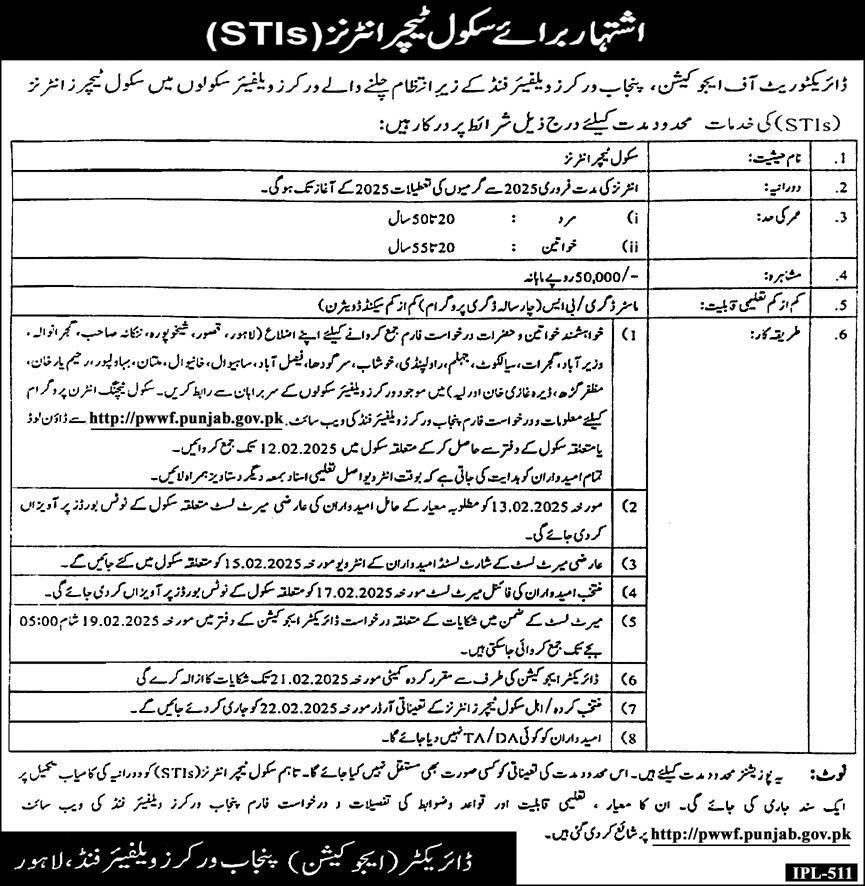 اشتہار برائے سکول ٹیچر انٹرنز (STIs)
ڈائریکٹوریٹ آف ایجوکیشن، پنجاب ورکرز ویلفیئر فنڈ کے زیر انتظام چلنے والے ورکرز ویلفیئر سکولوں میں سکول ٹیچرز انٹرنز
(STIs) کی خدمات محدود مدت کیلئے درج ذیل شرائط پر درکار ہیں:
1. نام حیثیت: سکول ٹیچر انٹرنز
2. دورانیہ: انٹرنز کی مدت فروری 2025 سے گرمیوں کی تعطیلات 2025 کے آغاز تک ہوگی۔
3. عمر کی حد: i) مرد : 20 تا 50 سال
ii) خواتین : 20 تا 55 سال
4. مشاہرہ: -/50,000 روپے ماہانہ
5. کم از کم تعلیمی قابلیت: ماسٹر ڈگری/ بی ایس (چار سالہ ڈگری پروگرام) کم از کم سیکنڈ ڈویثرن)
6. طریقہ کار: 1) خواہشمند خواتین و حضرات درخواست فارم جمع کروانے کیلئے اپنے اضلاع (لاہور، قصور، شیخوپورہ، ننکانہ صاحب، گجرانوالہ،
وزیر آباد، گجرات، سیالکوٹ، جہلم، راولپنڈی، خوشاب، سرگودھا، فیصل آباد، ساہیوال، خانیوال، ملتان، بہاولپور، رحیم یار خان،
مظفر گڑھ، ڈیرہ غازی خان اور لیہ) میں موجود ورکرز ویلفیئر سکولوں کے سربراہان سے رابطہ کریں۔ سکول ٹیچنگ انٹرن پروگرام
کیلئے معلومات و درخواست فارم پنجاب ورکرز ویلفیئر فنڈ کی ویب سائٹ. http://pwwf.punjab.gov.pk سے ڈاؤن لوڈ
یا متعلقہ سکول کے دفتر سے حاصل کر کے متعلقہ سکول میں 12.02.2025 تک جمع کروائیں۔
تمام امیدواران کو ہدایت کی جاتی ہے کہ بوقت انٹرویو اصل تعلیمی اسناد بمعہ دیگر دستاویز ہمراہ لائیں۔
2) مورخہ 13.02.2025 کو مطلوبہ معیار کے حامل امیدواران کی عارضی میرٹ لسٹ متعلقہ سکول کے نوٹس بورڈز پر آویزاں
کر دی جائے گی۔
3) عارضی میرٹ لسٹ کے شارٹ لسٹڈ امیدواران کے انٹرویو مورخہ 15.02.2025 کو متعلقہ سکول میں کئے جائیں گے۔
4) منتخب امیدواران کی فائنل میرٹ لسٹ مورخہ 17.02.2025 کو متعلقہ سکول کے نوٹس بورڈز پر آویزاں کر دی جائے گی۔
5) میرٹ لسٹ کے ضمن میں شکایات کے متعلقہ درخواست ڈائریکٹر ایجوکیشن کے دفتر میں مورخہ 19.02.2025 شام 05:00
بجے تک جمع کروائی جاسکتی ہیں۔
6) ڈائریکٹر ایجوکیشن کی طرف سے مقرر کردہ کمیٹی مورخہ 21.02.2025 تک شکایات کا ازالہ کرے گی
7) منتخب کردہ/ اہل سکول ٹیچرز انٹرنز کے تعیناتی آرڈر مورخہ 22.02.2025 کو جاری کر دئے جائیں گے۔
8) امیدواران کو کوئی TA/DA نہیں دیا جائے گا۔
نوٹ: یہ پوزیشنز محدود مدت کیلئے ہیں۔ اس محدود مدت کی تعیناتی کو کسی صورت بھی مستقل نہیں کیا جائے گا۔ تاہم سکول ٹیچر انٹرنز (STIs) کو دورانیہ کی کامیاب تکمیل پر
ایک سند جاری کی جائے گی۔ ان کا معیار ، تعلیمی قابلیت اور قواعد وضوابط کی تفصیلات و درخواست فارم پنجاب ورکرز ویلفیئر فنڈ کی ویب سائٹ
http://pwwf.punjab.gov.pk پر شائع کر دی گئی ہیں۔
ڈائریکٹر (ایجوکیشن) پنجاب ورکرز ویلفیئر فنڈ، لاہور
IPL-511